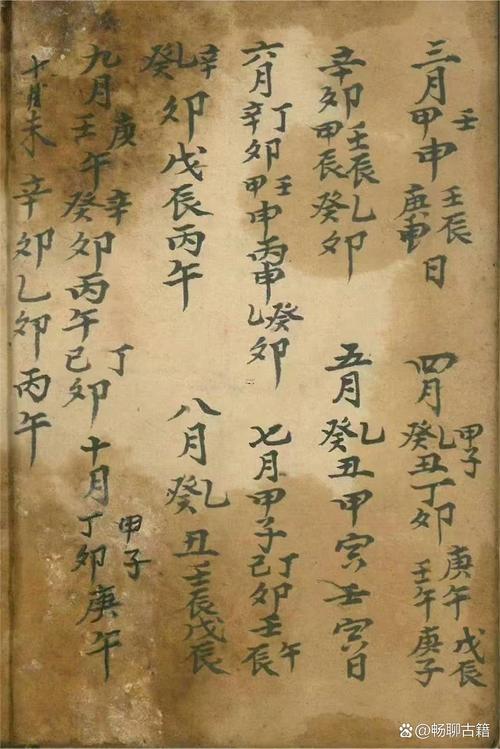 三月甲壬申庚申壬辰日
四月癸乙丑丁卯甲子壬午庚子庚午戊辰
辛卯甲辰壬辰乙癸卯
五月癸乙丑甲寅壬寅日
六月辛丁卯甲壬申丙申乙癸卯
七月甲子己丁卯壬午辰
癸乙辛卯戊辰丙午
八月癸乙丑壬辰戊辰
九月壬庚午癸辛卯丙午己丁卯
十月丁卯甲子庚午
未辛卯乙卯丙午
@畅聊古籍